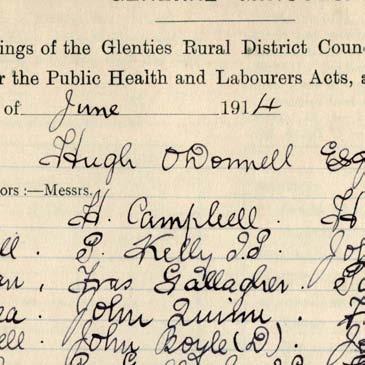 ings of the Glenties Rural District Coun
r the Public Health and Labourers Acts, a
of June 1914
Hugh O'Donnell Esq
ors :—Messrs.
H. Campbell . H
ll . P. Kelly J.P. . Jo
an , Fras Gallagher . Pa
ea . John Quinn .
ell . John Boyle (D) . Jo